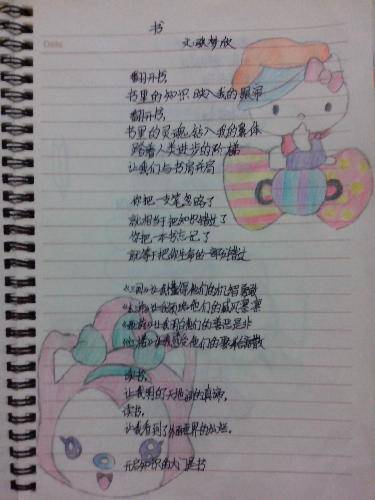 书
文/欧梦欣
Date
翻开书,
书里的知识映入我的眼帘
翻开书,
书里的灵魂钻入我的躯体
踏着人类进步的阶梯
让我们与书肩并肩
你把一支笔忽略了
就相当于把知识错过了
你把一本书忘记了
就等于把你生命的一部分错过
《三国》让我懂得他们的机智勇敢
《水浒》让我领略他们的威风凛凛
《西游》让我明白他们的善恶是非
《红楼》让我感受他们的聚和离散
读书,
让我明白了天地间的真谛,
读书,
让我看到了外面世界的灿烂。
开启知识的大门是书